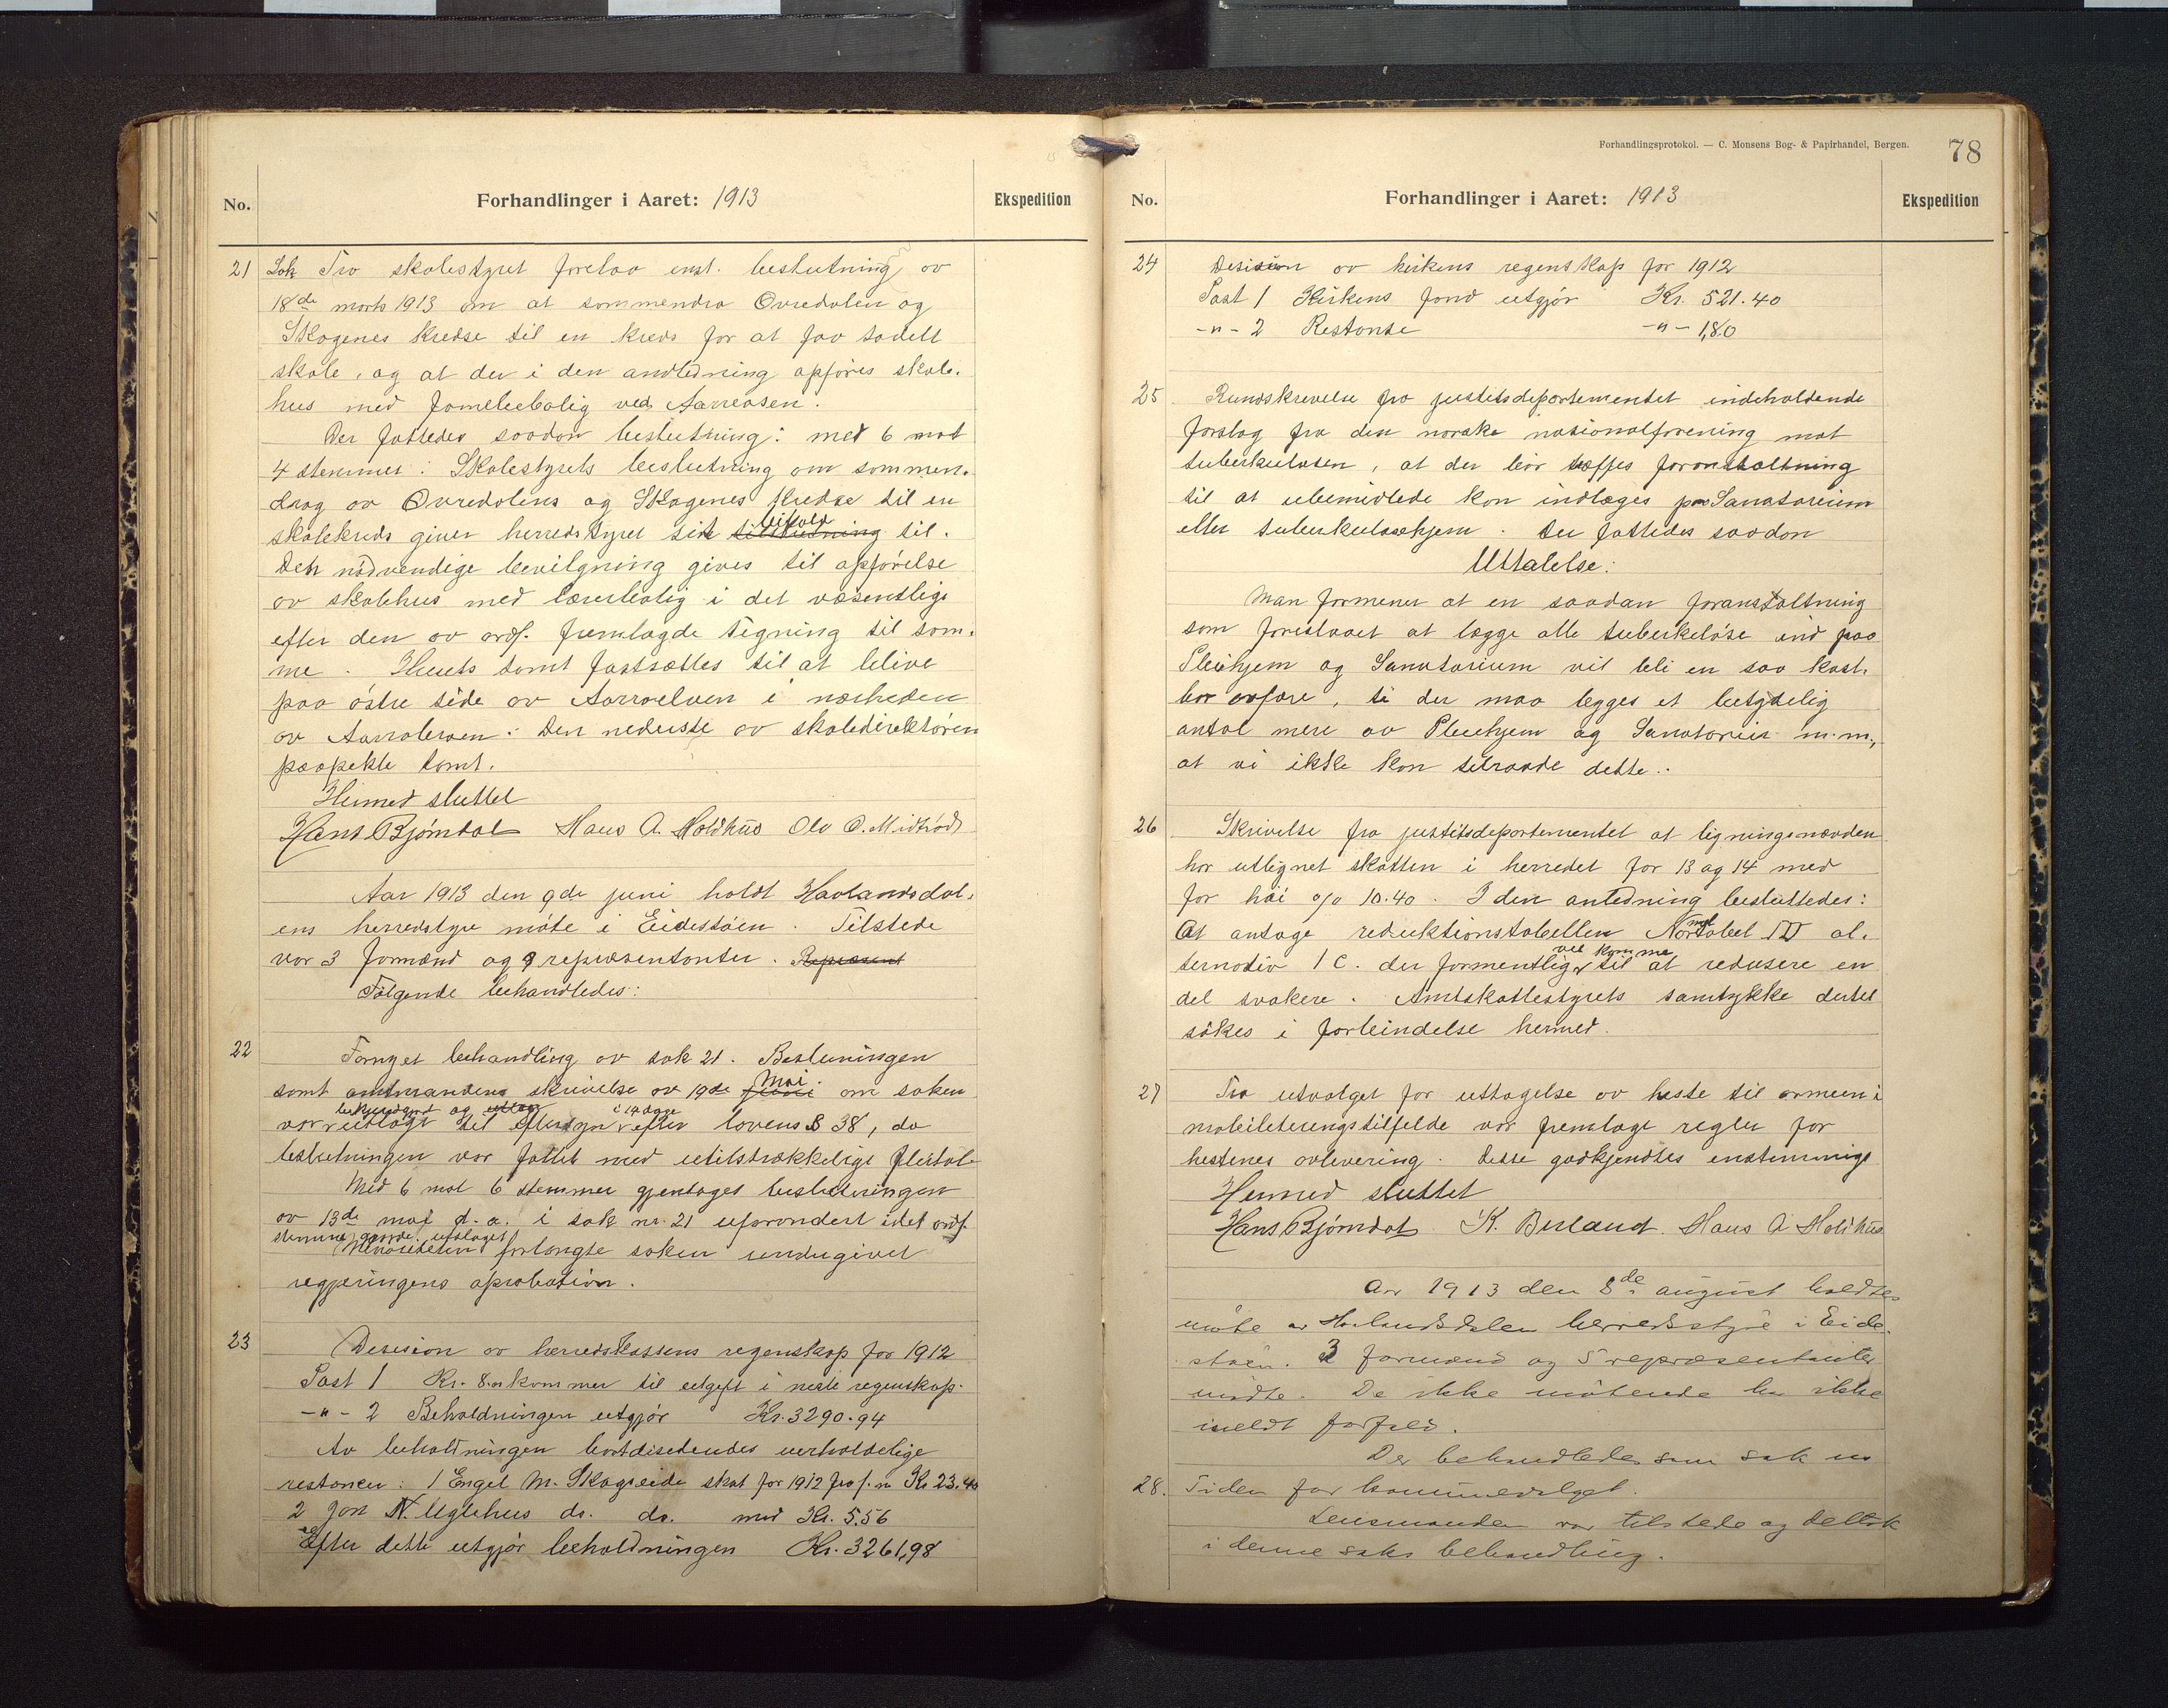 No. Forhandlinger i Aaret: 1913 Ekspedition
21 Sak Fra skolestyret forelaa enst. beslutning av
18de marts 1913 om at sammendra Øvredalen og
Skogenes kredse til en kreds for at faa todelt
skole, og at der i den andledning opføres skole-
hus med familiebolig ved Aarreaasen.
Der fattedes saadan beslutning: med 6 mot
4 stemmer: Skolestyrets beslutning om sammen-
drag av Øvredalens og Skogenes kredse til en
skolekreds giver herredstyret sit tilslutning bifald til.
Den nødvendige bevilgning gives til opførelse
av skolehus med lærerbolig i det væsentlige
efter den av ordf. fremlagde tegning til sam-
me. Husets tomt fastsættes til at blive
paa østre side av Aarraelven i nærheden
av Aarrabroen: Den nederste av skoledirektøren
paapekte tomt.
Hermed sluttet
Hans Bjørndal Hans A. Holdhus Ola O. Midtrød
Aar 1913 den 9de juni holdt Haalandsdal-
ens herredstyre møte i Eidestøen. Tilstede
var 3 formænd og 9 repræsentanter. Represent
Følgende behandledes:
22 Fornyet behandling av sak 21. Beslutningen
samt amtmandens skrivelse av 19de juni Mai om saken
var bekjendtgjort og utlagt til eftersyn i 14 dage efter lovens § 38, da
beslutningen var fattet med utilstrækkelige flertal
Med 6 mot 6 stemmer gjentages beslutningen
av 13de mai d.a. i sak nr. 21 uforandert idet ordf.
stemme gjorde utslaget
Minoriteten forlangte saken undergivet
regjeringens aprobation.
23 Desision av herredskassens regenskap for 1912
Post 1 Kr. 8.- kommer til utgift i neste regenskap.
-"- 2 Beholdningen utgjør Kr. 3290.94
Av beholdningen bortdisederdes uerholdelige
restancer: 1 Engel M. Skogseide skat for 1912 Kr 23.40
2 Jon N. Uglehus do. do. med Kr. 5.56
Efter dette utgjør beholdningen Kr. 3261,98
Forhandlingsprotokol. — C. Monsens Bog- & Papirhandel, Bergen. 78
No. Forhandlinger i Aaret: 1913 Ekspedition
24 Desision av kirkens regenskap for 1912
Post 1 Kirkens fond utgjør Kr. 521.40
-"- 2 Restanse -"- 1,80
25 Rundskrivelse fra justitsdepartementet indeholdende
forslag fra den norske nationalforening mot
tuberkulosen, at der bør træffes foranstaltning
til at ubemidlede kan indlægges paa Sanatorium
eller tuberkulosehjem. Der fattedes saadan
Uttalelse:
Man formener at en saadan foranstaltning
som foreslaaet at lægge alle tuberkeløse ind paa
Pleiehjem og Sanatorium vil bli en saa kost-
bar affære, ti der maa bygges et betydelig
antal mere av Pleiehjem og Sanatorier m.m.,
at vi ikke kan tilraade dette.
26 Skrivelse fra justitsdepartementet at ligningsnævnden
har utlignet skatten i herredet for 13 og 14 med
for høi % 10.40. I den anledning besluttedes:
At antage reduktionstabellen Normaltabel IV al-
ternativ 1 C. der formentlig vil komme til at redusere en
del svakere. Amtskattestyrets samtykke dertil
søkes i forbindelse hermed.
27 Fra utvalget for uttagelse av heste til armeen i
mobiliteringstilfelde var fremlagt regler for
hestenes avlevering. Disse godkjendtes enstemmige
Hermed sluttet
Hans Bjørndal K. Berland. Hans A Holdhus
Aar 1913 den 8de august holdtes
møte av Haalandsdalen herredsstyre i Eide-
støen. 3 formænd og 5 repræsentanter
mødte. De ikke møtende har ikke
meldt forfald.
Der behandledes som sak nr
28. Tiden for kommunevalget.
Lensmanden var tilstede og deltok
i denne saks behandling.